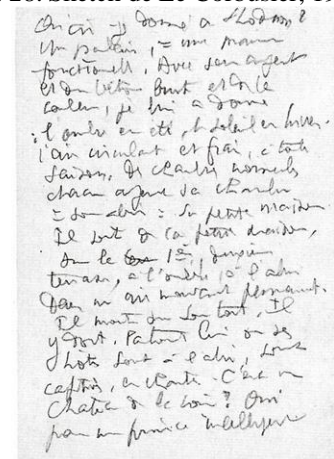 Qu'ai-je donné à Shodan?
Un palais, = une maison
fonctionnelle. Avec son argent
et du béton brut et de la
couleur, je lui ai donné
l'ombre en été, le soleil en hiver,
l'air circulant et frais, à toute
saison. Des chambres normales
chacun a sa chambre
= son abri = sa petite maison
Il sort de sa petite maison,
sur la 1è, deuxième
terrasse, à l'ombre, à l'abri
Dans un air mouvant permanent.
Il monte sur son toit. Il
y dort. Partout lui ou ses
hôtes sont à l'abri, sont
C'est un
Château de la Loire? Oui
pour un prince intelligent